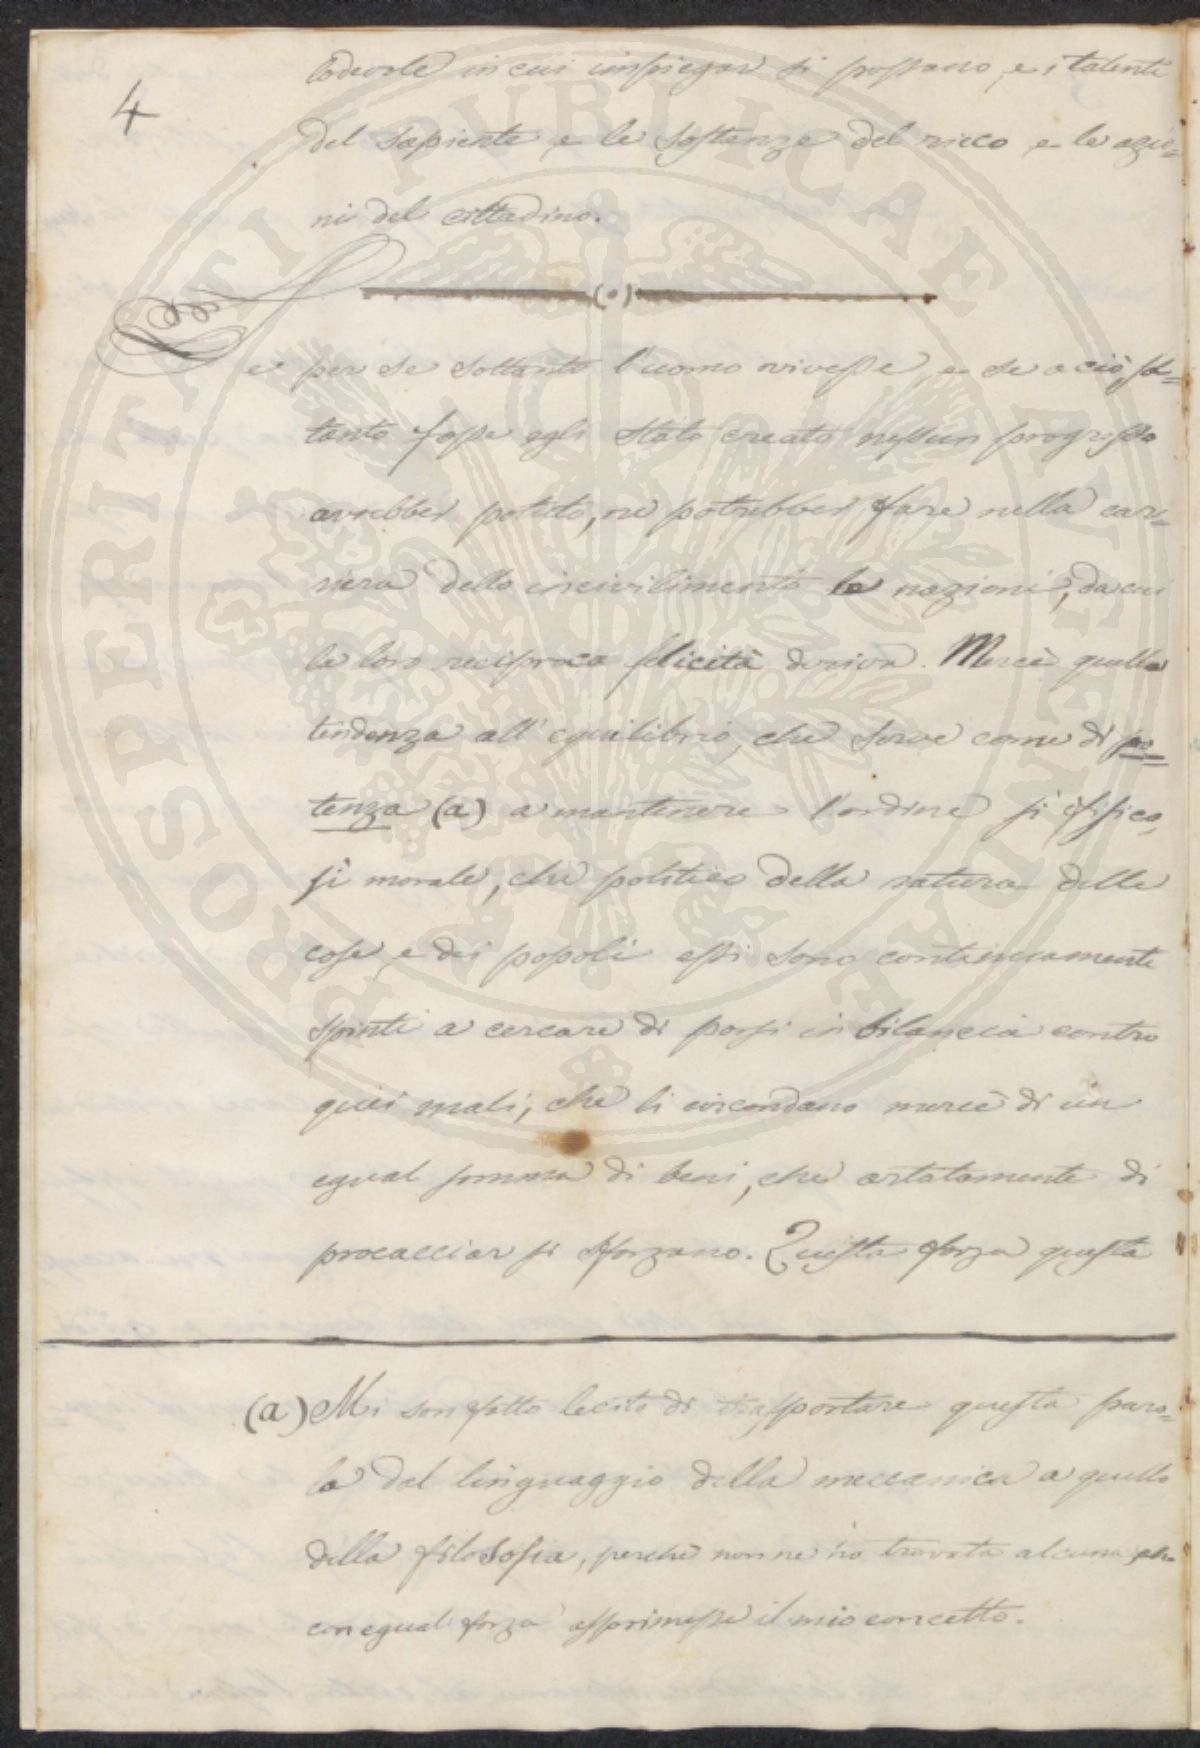 4
lodevole in cui impiegar si possano, e i talenti
del sapiente e le sostanze del ricco e le azio=
ni del cittadino.
(o)
e per se soltanto l'uomo vivesse, e se a ciò sol=
tanto fosse egli stato creato nessun progresso
avrebber potuto, ne potrebber fare nella car=
riera dello incivilimento le nazioni, da cui
la loro reciproca felicità deriva. Mercè quella
tendenza all'equilibrio, che serve come di po=
tenza (a) a mantenere l'ordine sì fisico,
sì morale, che politico della natura delle
cose, e dei popoli essi sono continuamente
spinti a cercare di porsi in bilancia contro
quei mali, che li circondano mercè di un
egual somma di beni, che artatamente di
procacciar si sforzano. Questa forza questa
(a) Mi son fatto lecito di trasportare questa paro=
la dal linguaggio della meccanica a quello
della filosofia, perchè non ne ho trovata alcuna, che
con egual forza esprimesse il mio concetto.
PROSPERITATI PUBLICAE AUGENDAE